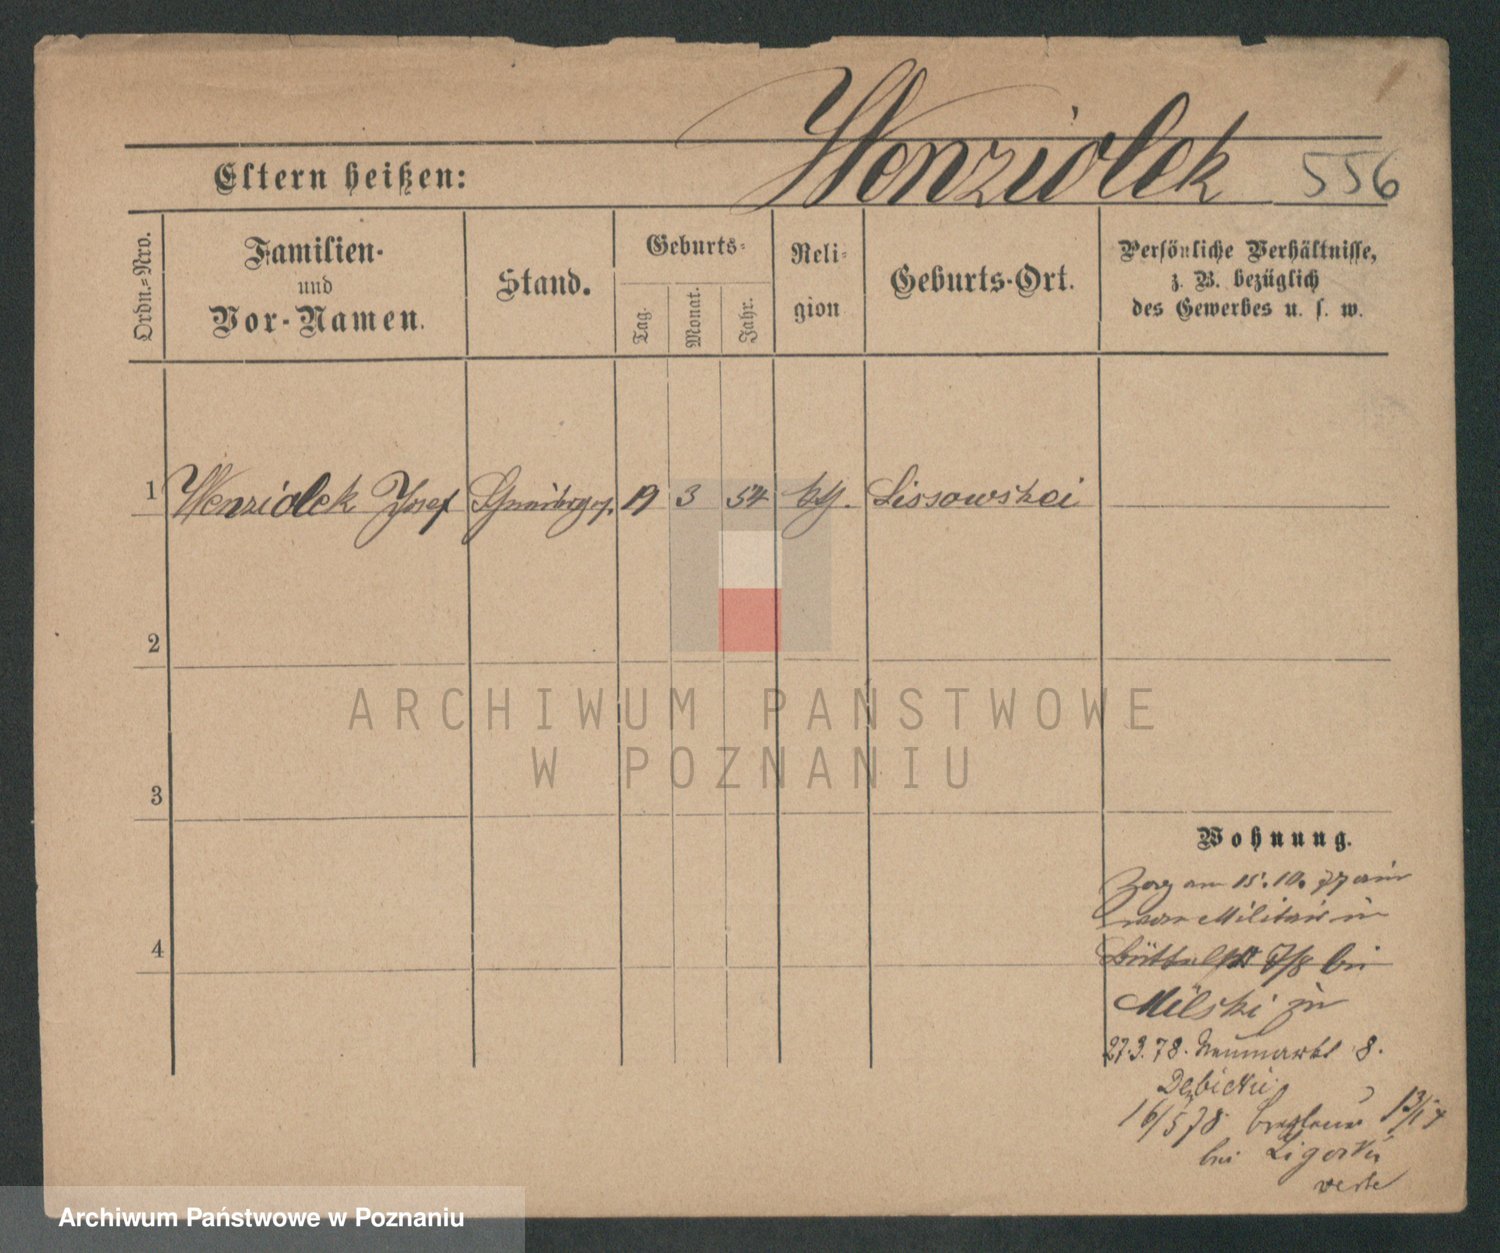 Wenziolek 556
Eltern heißen:
Ordn.=Nro.
Familien-
und
Vor-Namen.
Stand.
Geburts=
Tag.
Monat.
Jahr.
Reli=
gion
Geburts-Ort.
Persönliche Verhältnisse,
z. B. bezüglich
des Gewerbes u. s. w.
1 Wenziolek Josef 19 3 54 Lissowski
2
ARCHIWUM PAŃSTWOWE
W POZNANIU
3
Wohnung.
am 15.10.77
Militair in
4
Milski in
27.3.78. Neumarkt 8.
Debicki
16/5 78
bei Ligocki
verte
Archiwum Państwowe w Poznaniu